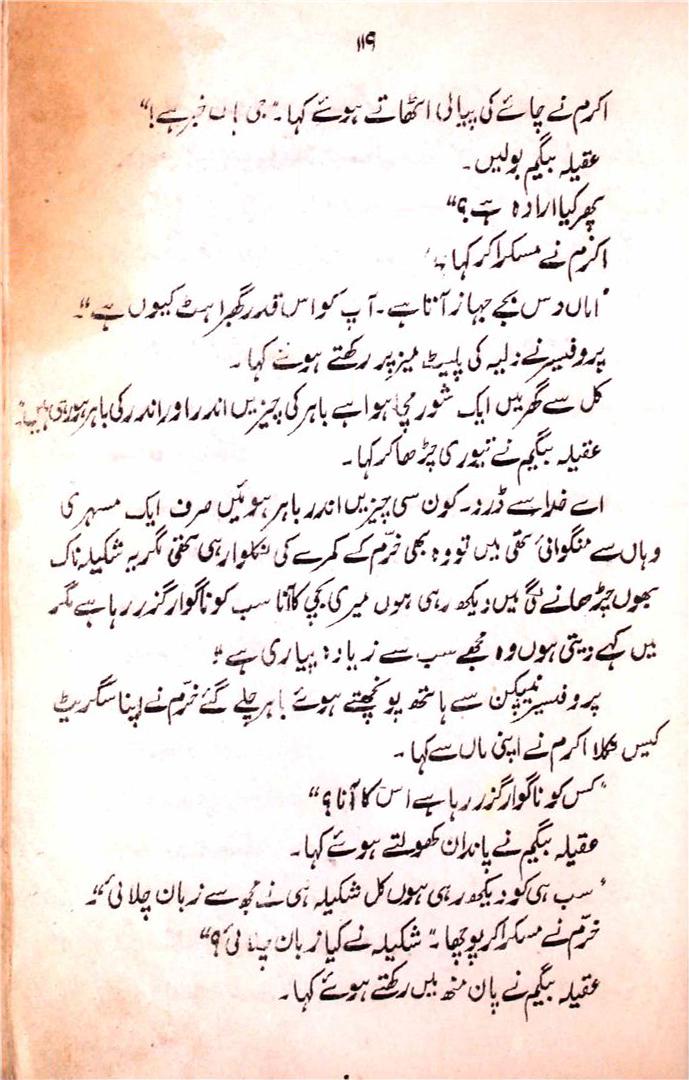 ۱۱۹
اکرم نے چائے کی پیالی اٹھاتے ہوئے کہا۔ "جی ہاں خبر ہے!"
عقیلہ بیگم بولیں۔
پھر کیا ارادہ ہے؟"
اکرم نے مسکرا کر کہا۔
"اماں دس بجے جہاز آتا ہے۔ آپ کو اس قدر گھبراہٹ کیوں ہے"۔
پروفیسر نے دلیہ کی پلیٹ میز پر رکھتے ہوئے کہا۔
کل سے گھر میں ایک شور مچا ہوا ہے باہر کی چیزیں اندر اور اندر کی باہر ہو رہی ہیں۔
عقیلہ بیگم نے تیوری چڑھا کر کہا۔
اے خدا سے ڈرو۔ کون سی چیزیں اندر باہر ہوئیں صرف ایک مسہری
وہاں سے منگوائی تھی میں تو وہ بھی خرّم کے کمرے کی نکلوا رہی تھی مگر یہ شکیلہ ناک
بھوں چڑھانے لگی میں دیکھ رہی ہوں میری بچی کا آنا سب کو ناگوار گزر رہا ہے مگر
میں کہے دیتی ہوں وہ مجھے سب سے زیادہ پیاری ہے"
پروفیسر نیپکن سے ہاتھ پونچھتے ہوئے باہر چلے گئے خرّم نے اپنا سگریٹ
کیس نکالا اکرم نے اپنی ماں سے کہا۔
"کس کو ناگوار گزر رہا ہے اس کا آنا؟"
عقیلہ بیگم نے پاندان کھولتے ہوئے کہا۔
"سب ہی کو دیکھ رہی ہوں کل شکیلہ ہی نے مجھ سے زبان چلائی"۔
خرّم نے مسکرا کر پوچھا۔ "شکیلہ نے کیا زبان چلائی؟"
عقیلہ بیگم نے پان منھ میں رکھتے ہوئے کہا۔